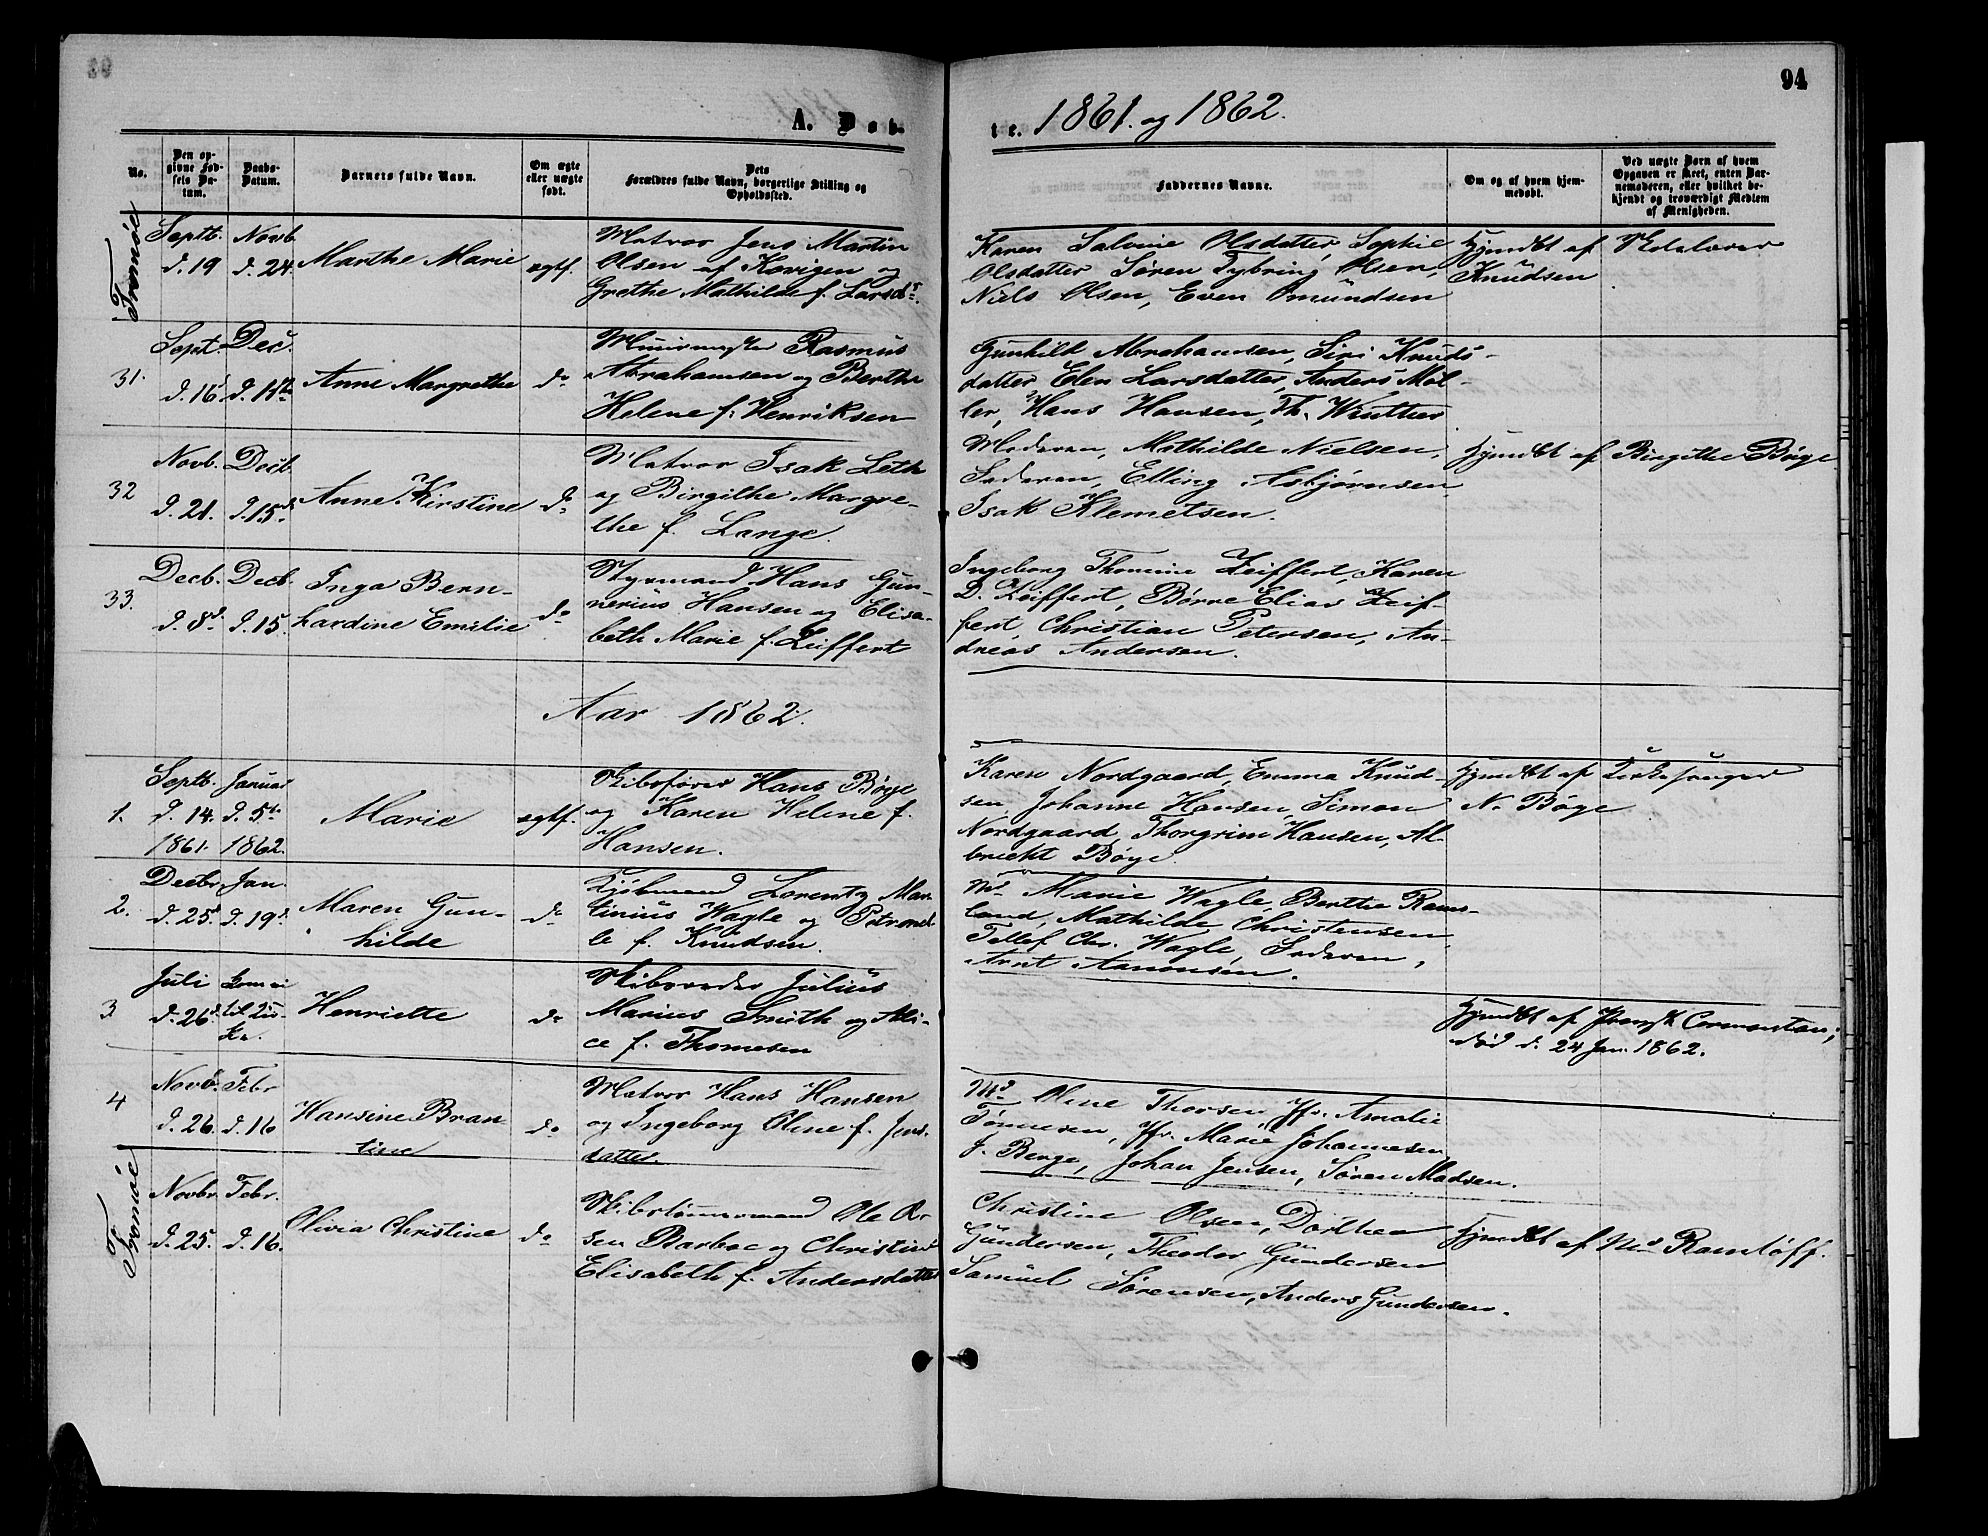 94
A. Døb-
te. 1861. og 1862.
No.
Den op-
givne Fød-
sels Da-
tum.
Daabs-
Datum.
Barnets fulde Navn.
Om ægte
eller uægte
født.
Dets
Forældres fulde Navn, borgerlige Stilling og
Opholdssted.
Faddernes Navne.
Om og af hvem hjem-
medøbt.
Ved uægte Børn af hvem
Opgaven er skeet, enten Bar-
nemoderen, eller hvilket be-
kjendt og troværdigt Medlem
af Menigheden.
Tromøe
Septb. d. 19
Novb. d. 24.
Marthe Marie
ægtf.
Matros Jens Martin
Olsen af Kovigen og
Grethe Mathilde f. Larsdt.
Karen Salvine Olsdatter, Sophie
Olsdatter Søren Tybring Olsen,
Niels Olsen, Even Omundsen
Hjmdbt af Skolelærer
Knudsen
31.
Sept. d. 16
Dec. d. 15de
Anne Margrethe
do
Muurmester Rasmus
Abrahamsen og Berthe
Helene f. Henriksen
Gunhild Abrahamsen, Siri Knuds-
datter Elen Larsdatter, Anders Møl-
ler, Hans Hansen, Th.
32
Novb. d. 21.
Decb. d. 15de
Anne Kirstine
do
Matros Isak Leth
og Birgithe Margre-
the f. Lange.
Moderen, Mathilde Nielsen,
Faderen, Elling Asbjørnsen
Isak Klemetsen.
Hjmdbt af Birgithe Bøge
33.
Decb. d. 8de
Decb. d. 15.
Inga Bern-
hardine Emilie
do
Styrmand Hans Gun-
nerius Hansen og Elisa-
beth Marie f. Zeiffert
Ingeborg Thomine Zeiffert, Karen
D. Zeiffert, Børre Elias Zeif-
fert, Christian Petersen, An-
dreas Andersen.
Aar 1862.
1.
Septb. d. 14. 1861.
Januar d. 5te 1862.
Marie
ægtf.
Skibsfører Hans Bøge
og Karen Helene f.
Hansen.
Karen Nordgaard, Emma Knud-
sen, Johanne Hansen, Simon
Nordgaard, Thorgrim Hansen, Al-
brecht Bøge.
Hjmdbt af Kirkesanger
N. Bøge
2.
Decbr. d. 25de
Jan. d. 19de
Maren Gun-
hilde
do
Kjøbmand Lorentz Mar-
tinius Wagle og Petronel-
le f. Knudsen.
Md. Marie Wagle, Berthe Rams-
land, Mathilde Christensen
Tellef Chr. Wagle, Faderen,
Arnt Aanonsen.
3
Juli d. 26de
Henriette
do
Skibsreder Julius
Marius Smith og Ali-
ce f. Thomesen
Hjmdbt af
død d. 24 Jan. 1862.
4
Novb. d. 26.
Febr d. 16
Hansine Bran-
tine
do
Matros Hans Hansen
og Ingeborg Oline f. Jens-
datter.
Md. Oline Thorsen, Jfr. Amalie
Tønnesen, Jfr. Marie Johannesen
J. Berge, Johan Jensen, Søren Madsen.
Tromøe
Novbr. d. 25.
Febr. d. 16.
Olivia Christine
do
Skibstømmermand Ole Ol-
sen Barboe og Christine
Elisabeth f. Andersdatter
Christine Olsen, Dorthea
Gundersen, Theodor Gundersen
Samuel Sørensen, Anders Gundersen.
Hjmdbt af Md. Ramløff.